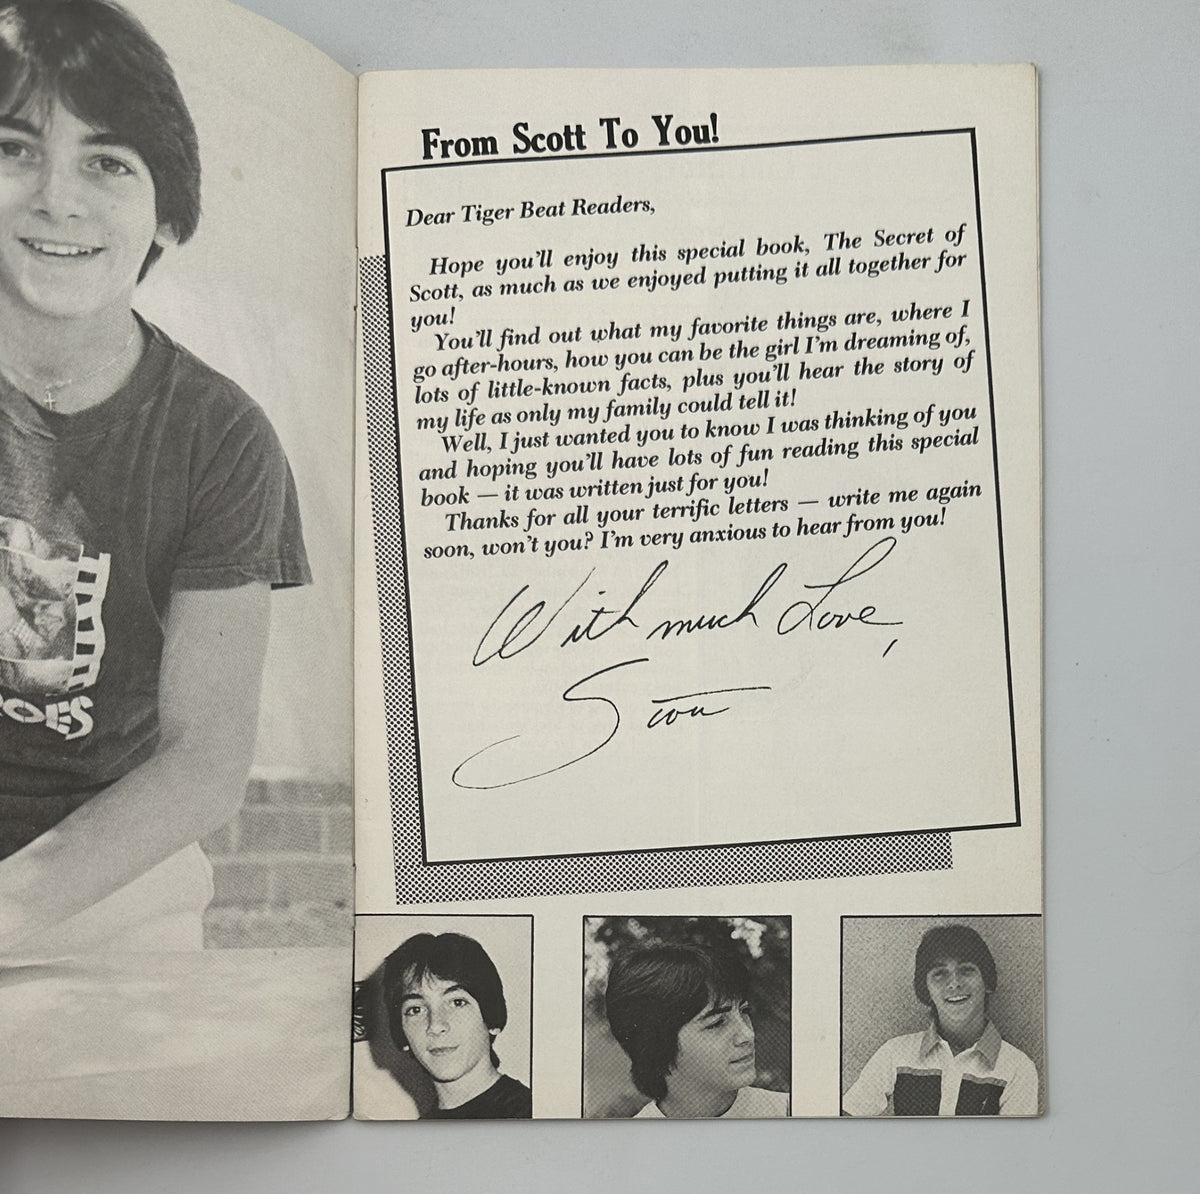 From Scott To You!
Dear Tiger Beat Readers,
Hope you'll enjoy this special book, The Secret of
Scott, as much as we enjoyed putting it all together for
you!
You'll find out what my favorite things are, where I
go after-hours, how you can be the girl I'm dreaming of,
lots of little-known facts, plus you'll hear the story of
my life as only my family could tell it!
Well, I just wanted you to know I was thinking of you
and hoping you'll have lots of fun reading this special
book — it was written just for you!
Thanks for all your terrific letters — write me again
soon, won't you? I'm very anxious to hear from you!
With much Love,
Scott